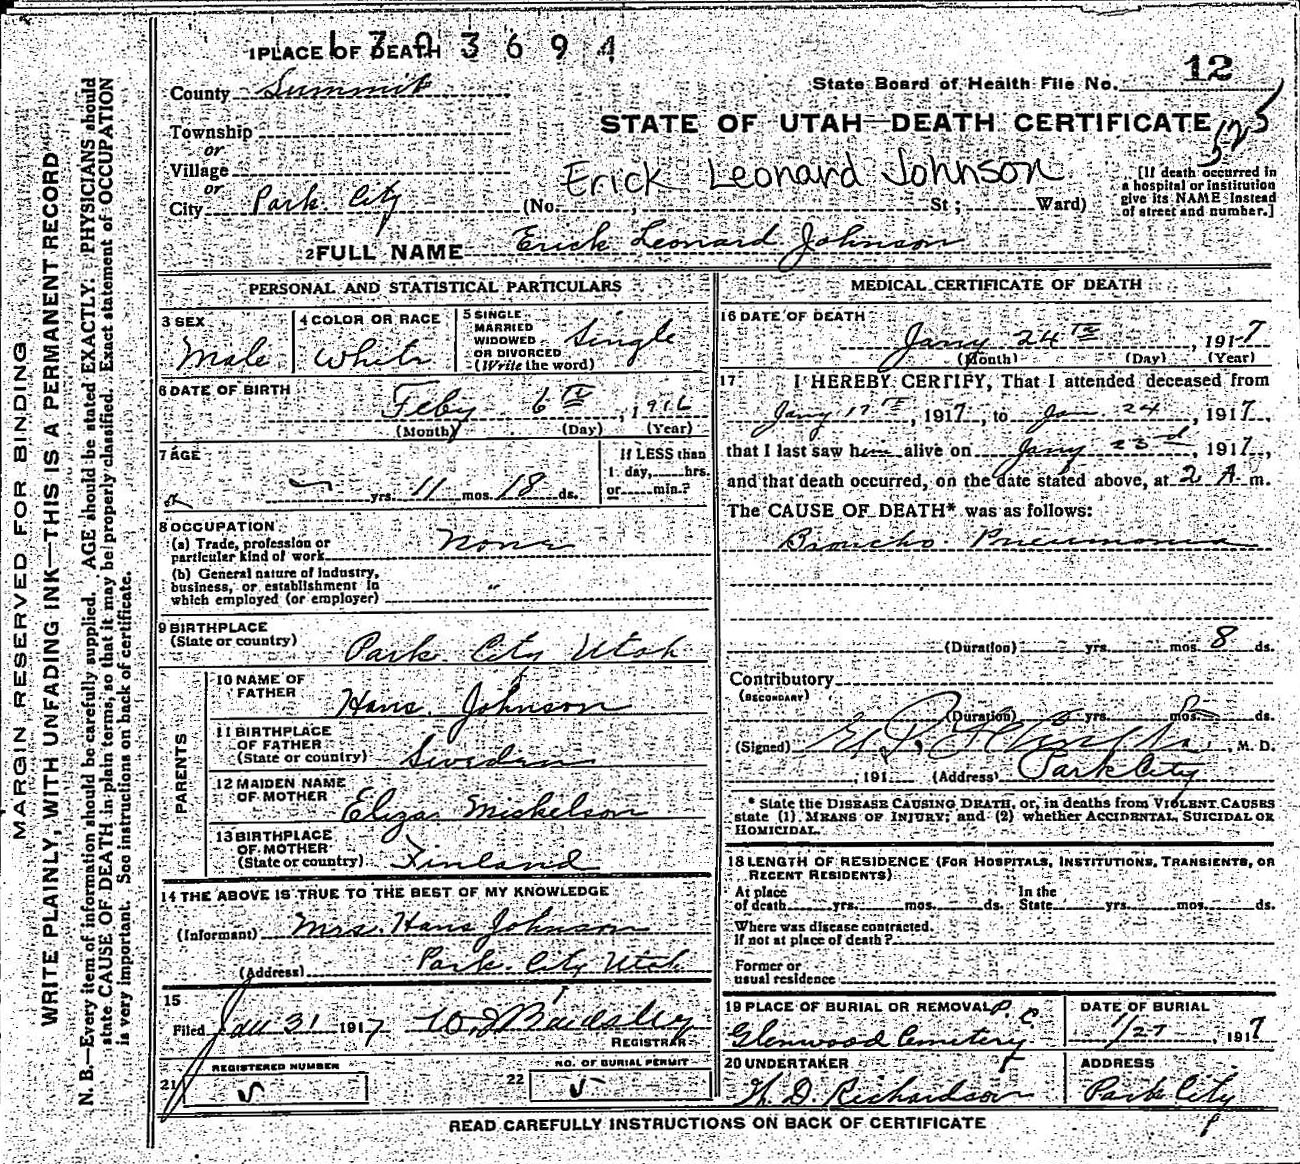 1 PLACE OF DEATH
State Board of Health File No. 12
County Summit
STATE OF UTAH—DEATH CERTIFICATE
Township
or
Village
or
City Park City
Erick Leonard Johnson
(No. , St ; Ward)
[If death occurred in
a hospital or institution
give its NAME instead
of street and number.]
2 FULL NAME Erick Leonard Johnson
PERSONAL AND STATISTICAL PARTICULARS
3 SEX
Male
4 COLOR OR RACE
White
5 SINGLE
MARRIED
WIDOWED
OR DIVORCED
(Write the word)
Single
6 DATE OF BIRTH
Feby 6th, 1916
(Month) (Day) (Year)
7 AGE
yrs. 11 mos. 18 ds.
If LESS than
1 day, hrs.
or min.?
8 OCCUPATION
(a) Trade, profession or
particular kind of work None
(b) General nature of industry,
business, or establishment in
which employed (or employer) "
9 BIRTHPLACE
(State or country) Park City Utah
PARENTS
10 NAME OF
FATHER Hans Johnson
11 BIRTHPLACE
OF FATHER
(State or country) Sweden
12 MAIDEN NAME
OF MOTHER Eliza Mickelson
13 BIRTHPLACE
OF MOTHER
(State or country) Finland
14 THE ABOVE IS TRUE TO THE BEST OF MY KNOWLEDGE
(Informant) Mrs. Hans Johnson
(Address) Park City Utah
15
Filed Jan 31 1917
REGISTRAR
21 REGISTERED NUMBER
22 NO. OF BURIAL PERMIT
MEDICAL CERTIFICATE OF DEATH
16 DATE OF DEATH
Jany 24th, 1917
(Month) (Day) (Year)
17 I HEREBY CERTIFY, That I attended deceased from
Jany 17th, 1917, to Jan. 24, 1917
that I last saw him alive on Jany 23d, 1917,
and that death occurred, on the date stated above, at 2 A m.
The CAUSE OF DEATH* was as follows:
Broncho Pneumonia
(Duration) yrs. mos. 8 ds.
Contributory
(SECONDARY)
(Duration) yrs. mos. ds.
(Signed) , M. D.
, 191 (Address) Park City
* State the DISEASE CAUSING DEATH, or, in deaths from VIOLENT CAUSES
state (1) MEANS OF INJURY; and (2) whether ACCIDENTAL, SUICIDAL OR
HOMICIDAL.
18 LENGTH OF RESIDENCE (FOR HOSPITALS, INSTITUTIONS, TRANSIENTS, OR
RECENT RESIDENTS)
At place
of death yrs. mos. ds.
In the
State yrs. mos. ds.
Where was disease contracted,
If not at place of death?
Former or
usual residence
19 PLACE OF BURIAL OR REMOVAL P. C.
Glenwood Cemetery
DATE OF BURIAL
1/27, 1917
20 UNDERTAKER
Richardson
ADDRESS
Park City
READ CAREFULLY INSTRUCTIONS ON BACK OF CERTIFICATE
MARGIN RESERVED FOR BINDING
WRITE PLAINLY, WITH UNFADING INK—THIS IS A PERMANENT RECORD
N. B.—Every item of information should be carefully supplied. AGE should be stated EXACTLY. PHYSICIANS should
state CAUSE OF DEATH in plain terms, so that it may be properly classified. Exact statement of OCCUPATION
is very important. See instructions on back of certificate.